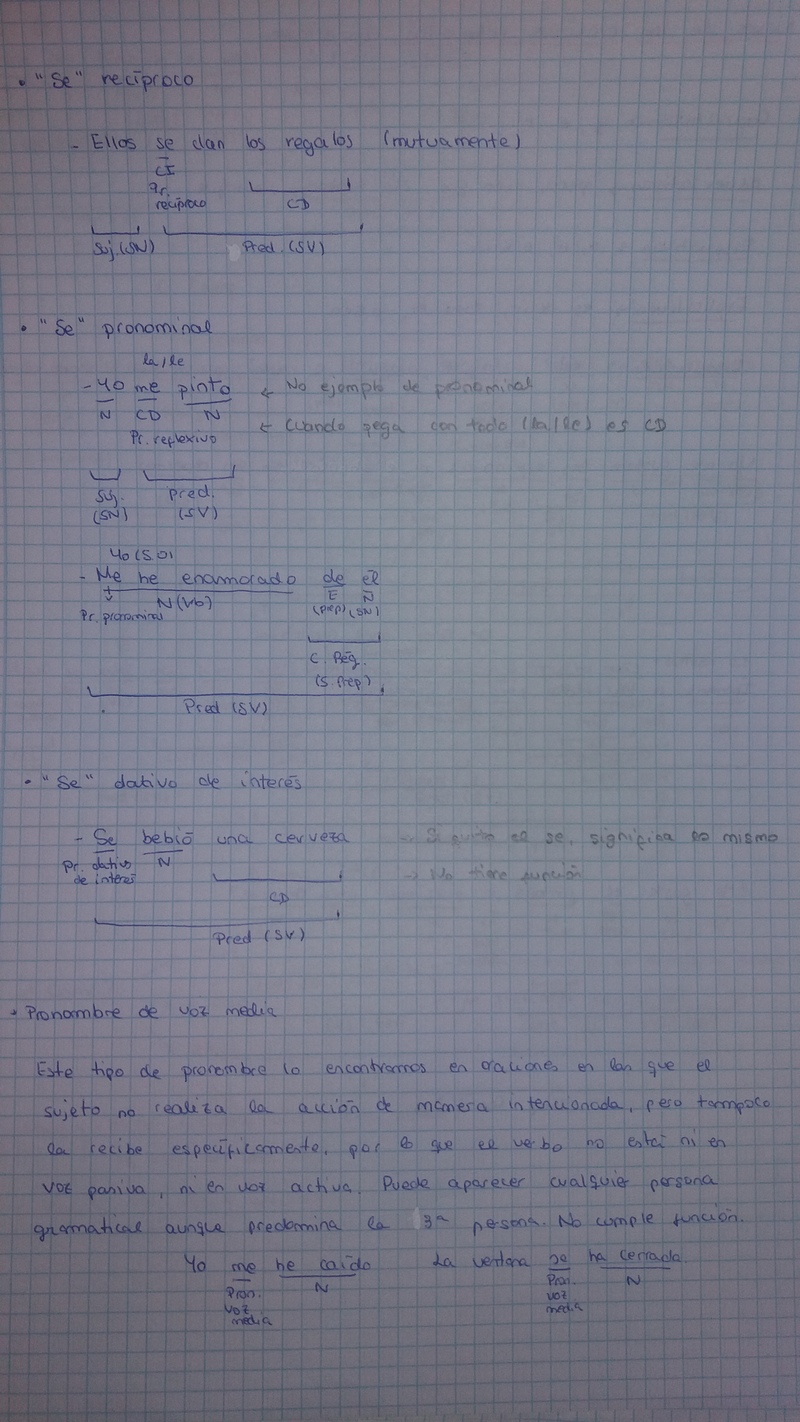 • "Se" recíproco
- Ellos se dan los regalos (mutuamente)
CI
Pr.
recíproco CD
Suj. (SN) Pred. (SV)
• "Se" pronominal
la/le
- Yo me pinto ← No ejemplo de pronominal
N CD N ← Cuando pega con todo (la/le) es CD
Pr. reflexivo
Suj. Pred.
(SN) (SV)
Yo (S.O)
- Me he enamorado de él
N (Vb) E N
Pr. pronominal (prep) (SN)
C. Rég.
(S. Prep)
Pred (SV)
• "Se" dativo de interés
- Se bebió una cerveza → Si quito el se, significa lo mismo
Pr. dativo N → No tiene función
de interés
CD
Pred (SV)
• Pronombre de voz media
Este tipo de pronombre lo encontramos en oraciones en las que el
sujeto no realiza la acción de manera intencionada, pero tampoco
la recibe específicamente, por lo que el verbo no está ni en
voz pasiva, ni en voz activa. Puede aparecer cualquier persona
gramatical aunque predomina la 3ª persona. No cumple función.
Yo me he caído La ventana se ha cerrado
Pron. N Pron. N
voz voz
media media